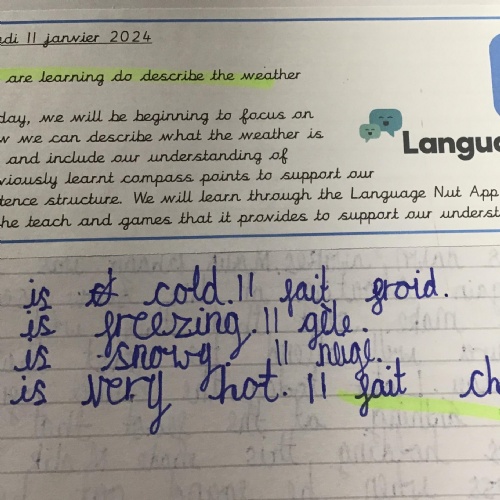 edi 11 janvier 2024
are learning do describe the weather
day, we will be beginning to focus on
w we can describe what the weather is
and include our understanding of
viously learnt compass points to support our
tence structure. We will learn through the Language Nut App
he teach and games that it provides to support our underst
Langua
is cold. Il fait froid.
is freezing. Il gèle.
is snowy. Il neige.
is very hot. Il fait ch